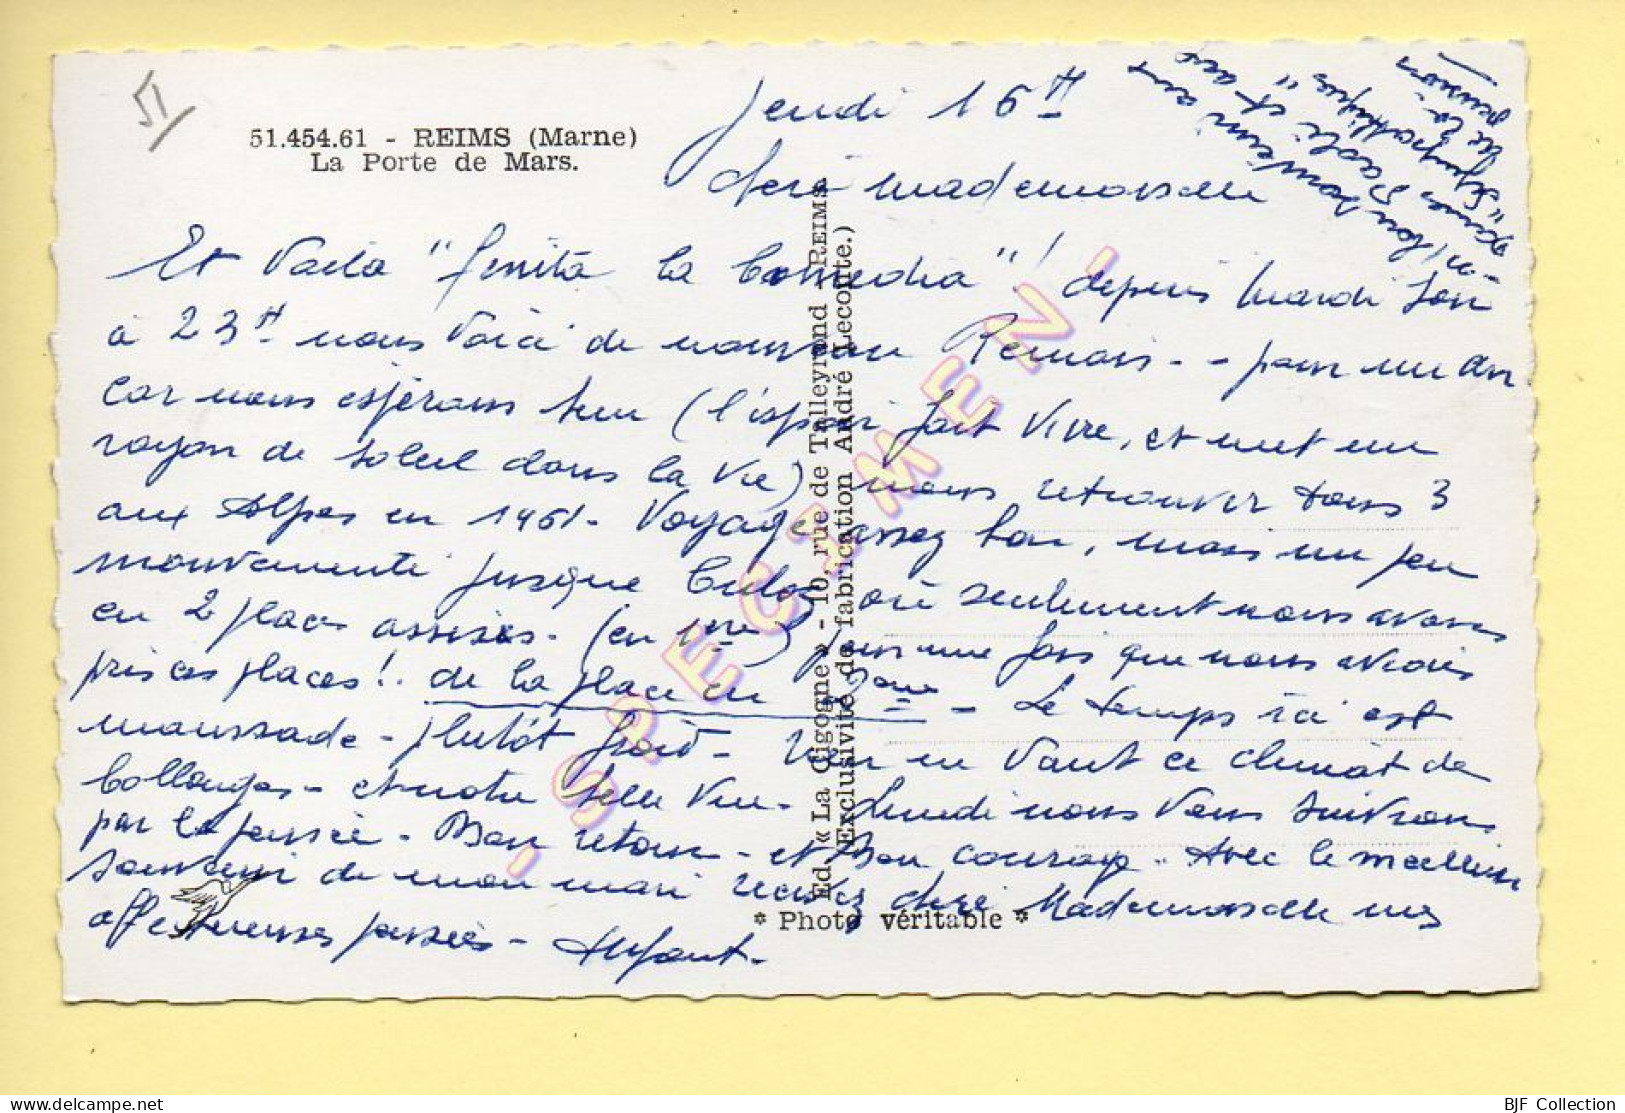 51
51.454.61 - REIMS (Marne)
La Porte de Mars.
Jeudi 16 H
Chère Mademoiselle
Et Voilà "finita la Comedia"! depuis mardi soir
à 23H nous voici de nouveau Rémois - - pour un an
car nous espérons bien (l'espoir fait vivre, et met un
rayon de soleil dans la vie) nous retrouver tous 3
aux Alpes en 1961 - Voyage assez bon, mais un peu
mouvementé jusque Culoz où seulement nous avons
eu 2 places assises - (en 1ère) pour une fois que nous avions
pris ces places! . de la place en 2ème - Le temps ici est
maussade - plutôt froid - rien ne vaut ce climat de
Collonges - et notre belle vue - Lundi nous vous suivrons
par la pensée - Bon retour - et Bon courage - Avec le meilleur
souvenir de mon mari recevez chère Mademoiselle mes
affectueuses pensées -
Bon souvenir aux
et aux
"sympathiques"
de la
pension
Ed. « La Cigogne » - 10, rue de Talleyrand - REIMS
(Exclusivité de fabrication André Lecomte.)
* Photo véritable *
- SPECIMEN -
www.delcampe.net
BJF Collection